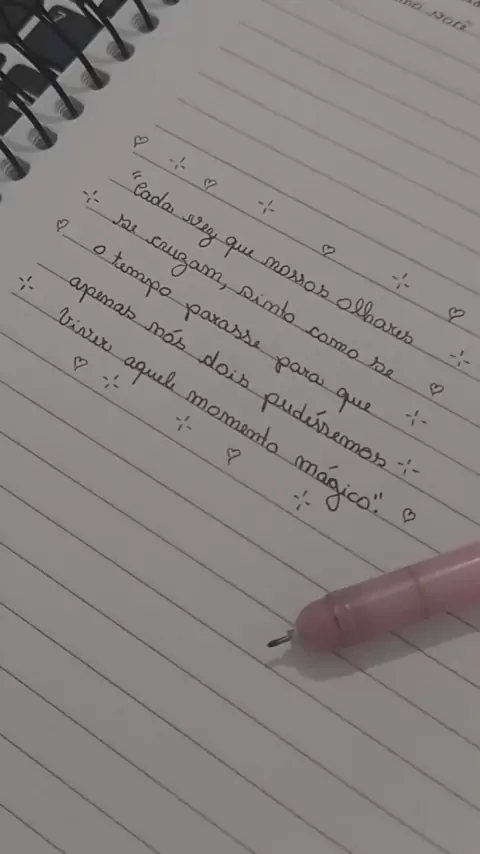 você
"Cada vez que nossos olhares
se cruzam, sinto como se
o tempo parasse para que
apenas nós dois pudéssemos
viver aquele momento mágico".